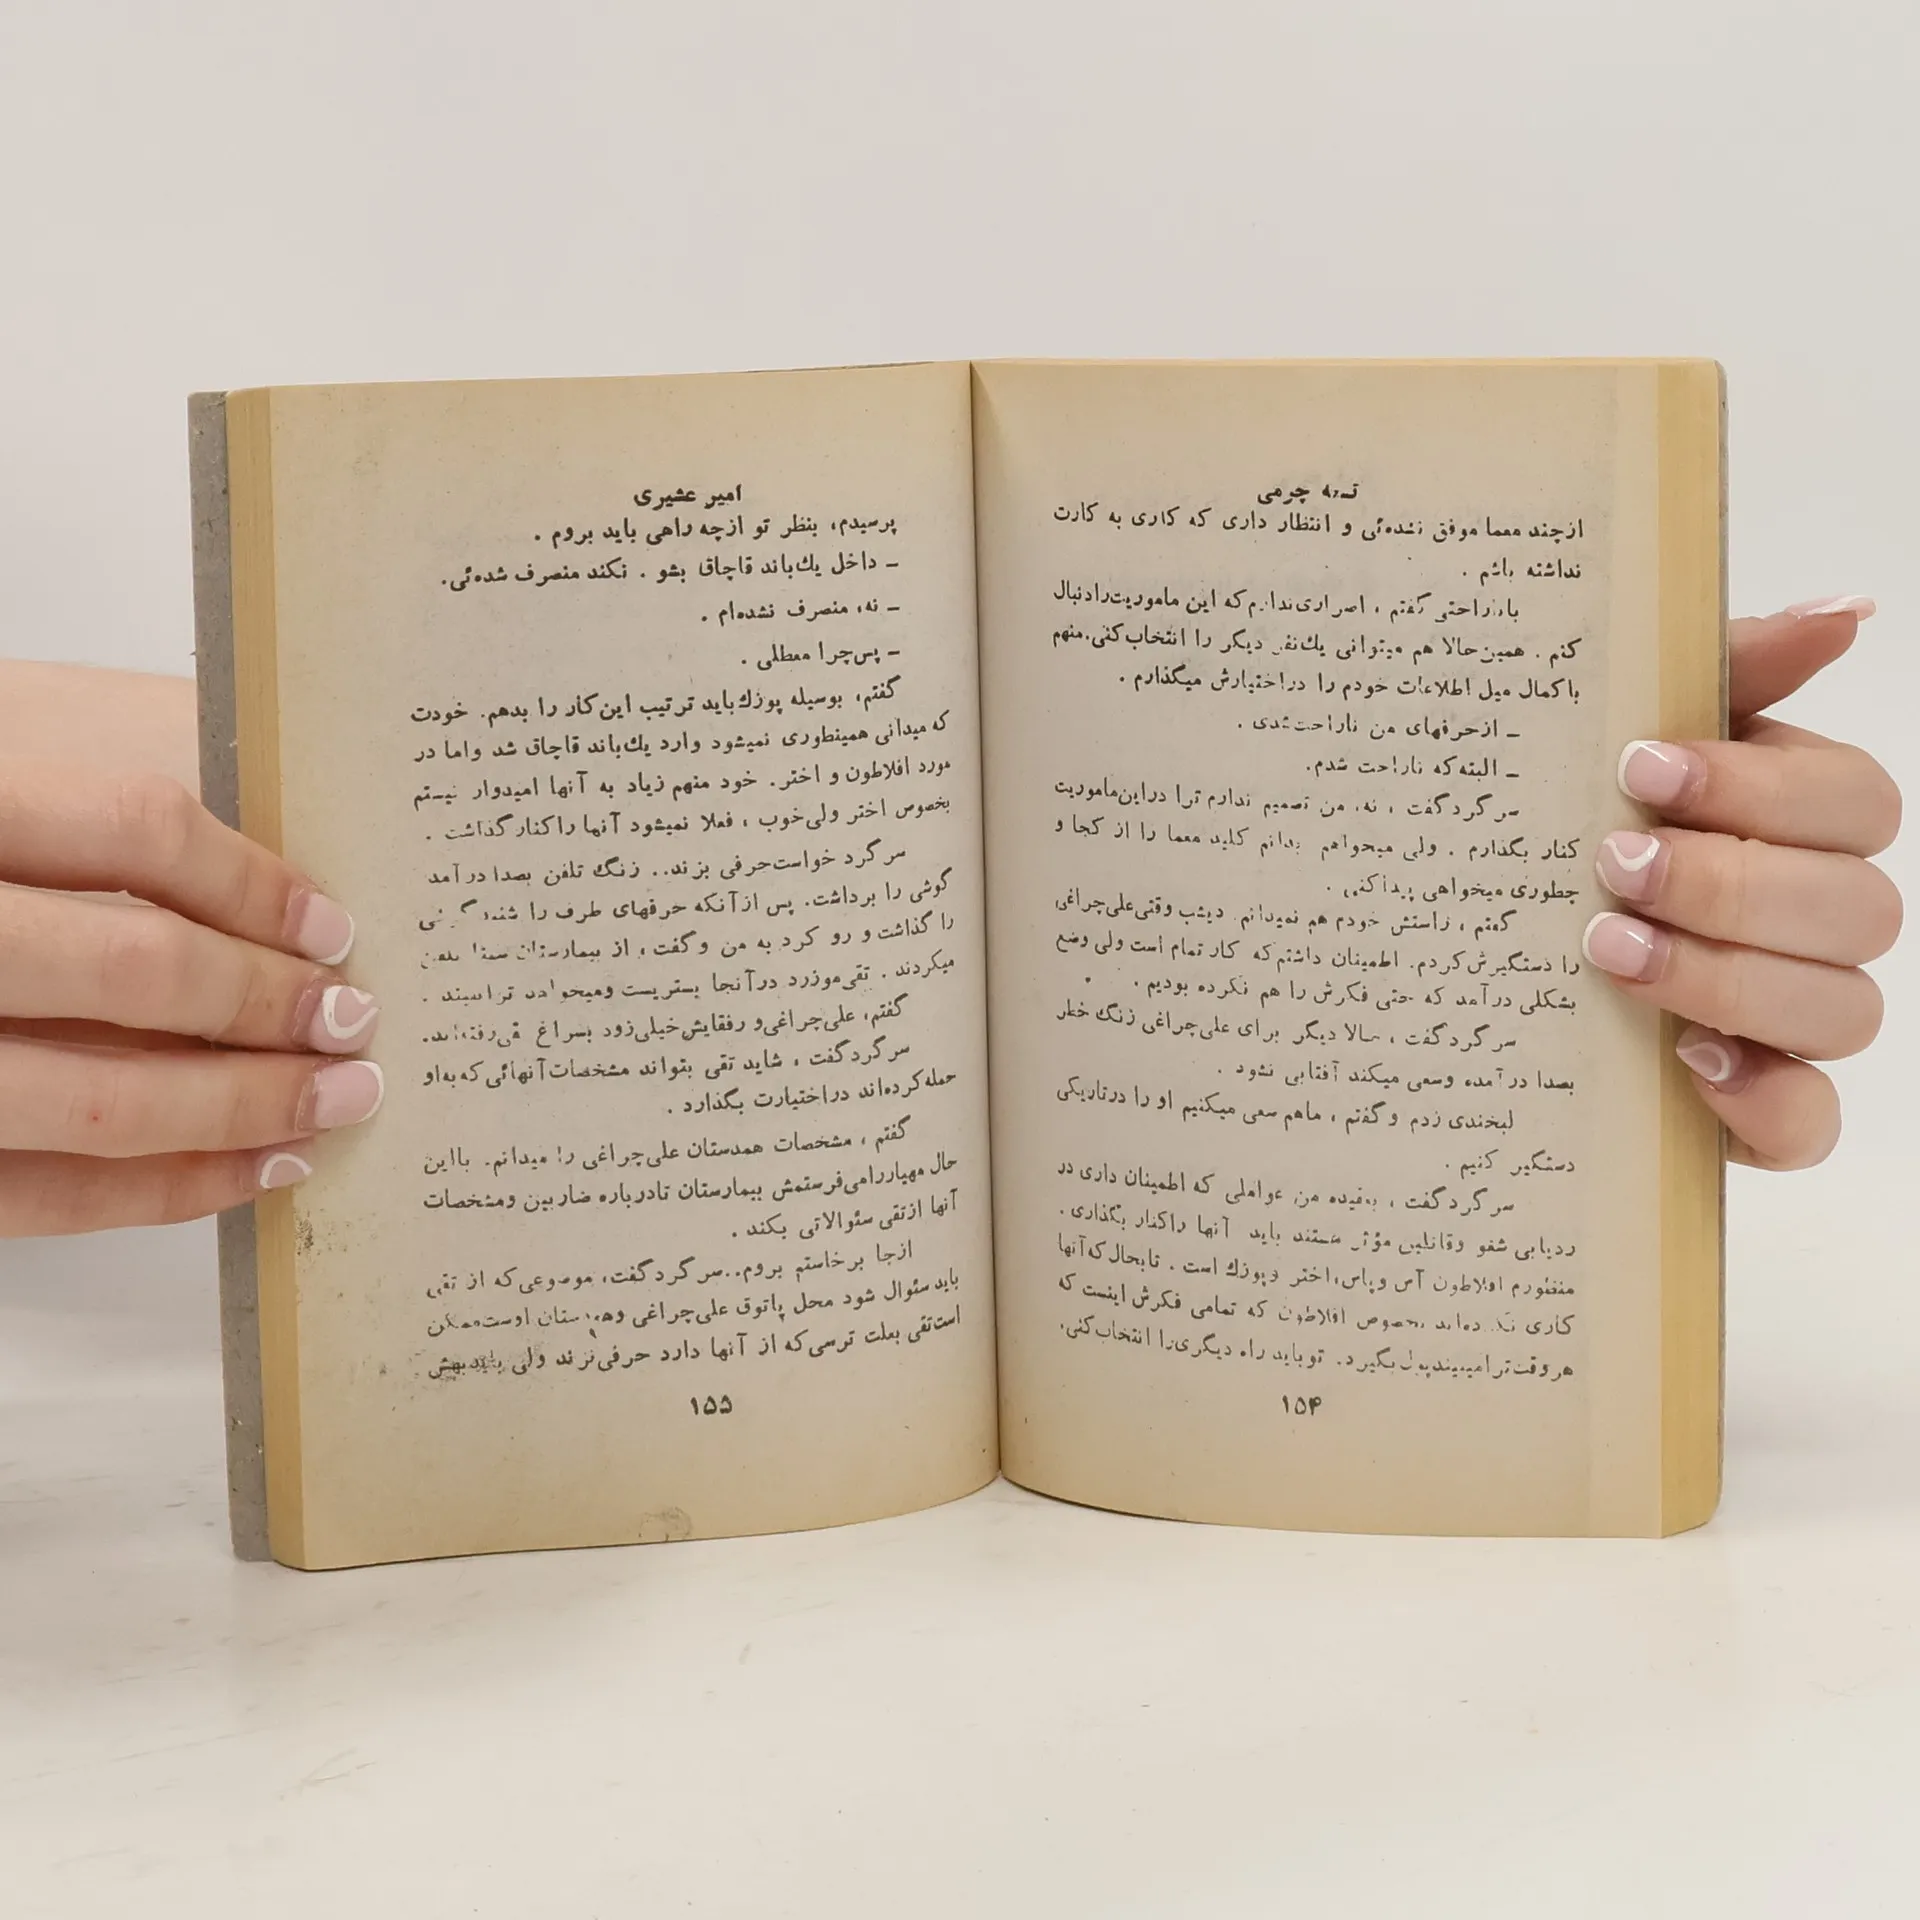 چرمی
ازچند معما موفق نشده‌ئی و انتظار داری که کاری به کارت
نداشته باشم .
گفتم ، اصراری‌ندارم‌که این ماموریت‌رادنبال
کنم . همین‌حالا هم میتوانی یك‌نفر دیگر را انتخاب‌کنی.منهم
باکمال میل اطلاعات خودم را دراختیارش میگذارم .
ـ ازحرفهای من ناراحت‌شدی .
ـ البته‌که ناراحت شدم.
سرگردگفت ، نه، من تصمیم ندارم ترا دراین‌ماموریت
کنار بگذارم . ولی میخواهم بدانم کلید معما را از کجا و
چطوری میخواهی پیداکنی .
گفتم ، راستش خودم هم نمیدانم. دیشب وقتی‌علی‌چراغی
را دستگیرش‌کردم. اطمینان داشتم‌که کار تمام است ولی وضع
بشکلی درآمد که حتی فکرش را هم نکرده بودیم .
سرگردگفت ، حالا دیگر برای علی‌چراغی زنگ خطر
بصدا درآمده وسعی میکند آفتابی نشود .
لبخندی زدم وگفتم ، ماهم سعی میکنیم او را درتاریکی
دستگیر کنیم .
سرگردگفت ، بعقیده من، عواملی که اطمینان داری در
ردیابی شفو وقاتلین مؤثر هستند باید آنها راکنار بگذاری.
منظورم افلاطون آس وپاس، اختر وپوزك است . تابحال‌که‌آنها
کاری بخصوص افلاطون که تمامی فکرش اینست که
هروقت‌ترامیبیندپول‌بگیرد. توباید راه دیگری‌را انتخاب‌کنی.
۱۵۴
امیر عشیری
پرسیدم، بنظر تو ازچه راهی باید بروم .
ـ داخل یك‌باند قاچاق بشو . نکند منصرف شده‌ئی.
ـ نه، منصرف نشده‌ام .
ـ پس‌چرا معطلی .
گفتم، بوسیله پوزك‌باید ترتیب این‌کار را بدهم. خودت
که میدانی همینطوری نمیشود وارد یك‌باند قاچاق شد واما در
مورد افلاطون و اختر. خود منهم زیاد به آنها امیدوار نیستم
بخصوص اختر ولی‌خوب ، فعلا نمیشود آنها راکنارگذاشت .
سرگرد خواست‌حرفی بزند.. زنگ تلفن بصدا درآمد
گوشی را برداشت. پس ازآنکه حرفهای طرف را شنید گوشی
را گذاشت و رو کرد به من وگفت ، از بیمارستان سینا تلفن
میکردند . تقی‌موزرد درآنجا بستریست ومیخواهد ترا ببیند .
گفتم، علی‌چراغی‌و رفقایش‌خیلی‌زود بسراغ تقی‌رفته‌اند.
سرگردگفت ، شاید تقی بتواند مشخصات‌آنهائی‌که‌به‌او
حمله‌کرده‌اند دراختیارت بگذارد .
گفتم ، مشخصات همدستان علی‌چراغی را میدانم. بااین
حال مهیاررامی‌فرستمش بیمارستان تادرباره ضاربین ومشخصات
آنها ازتقی سئوالاتی بکند .
ازجا برخاستم بروم..سرگردگفت، موضوعی‌که از تقی
باید سئوال شود محل پاتوق علی‌چراغی اوست‌ممکن
است‌تقی بعلت ترسی‌که از آنها دارد حرفی‌نزند ولی باید بهش
۱۵۵